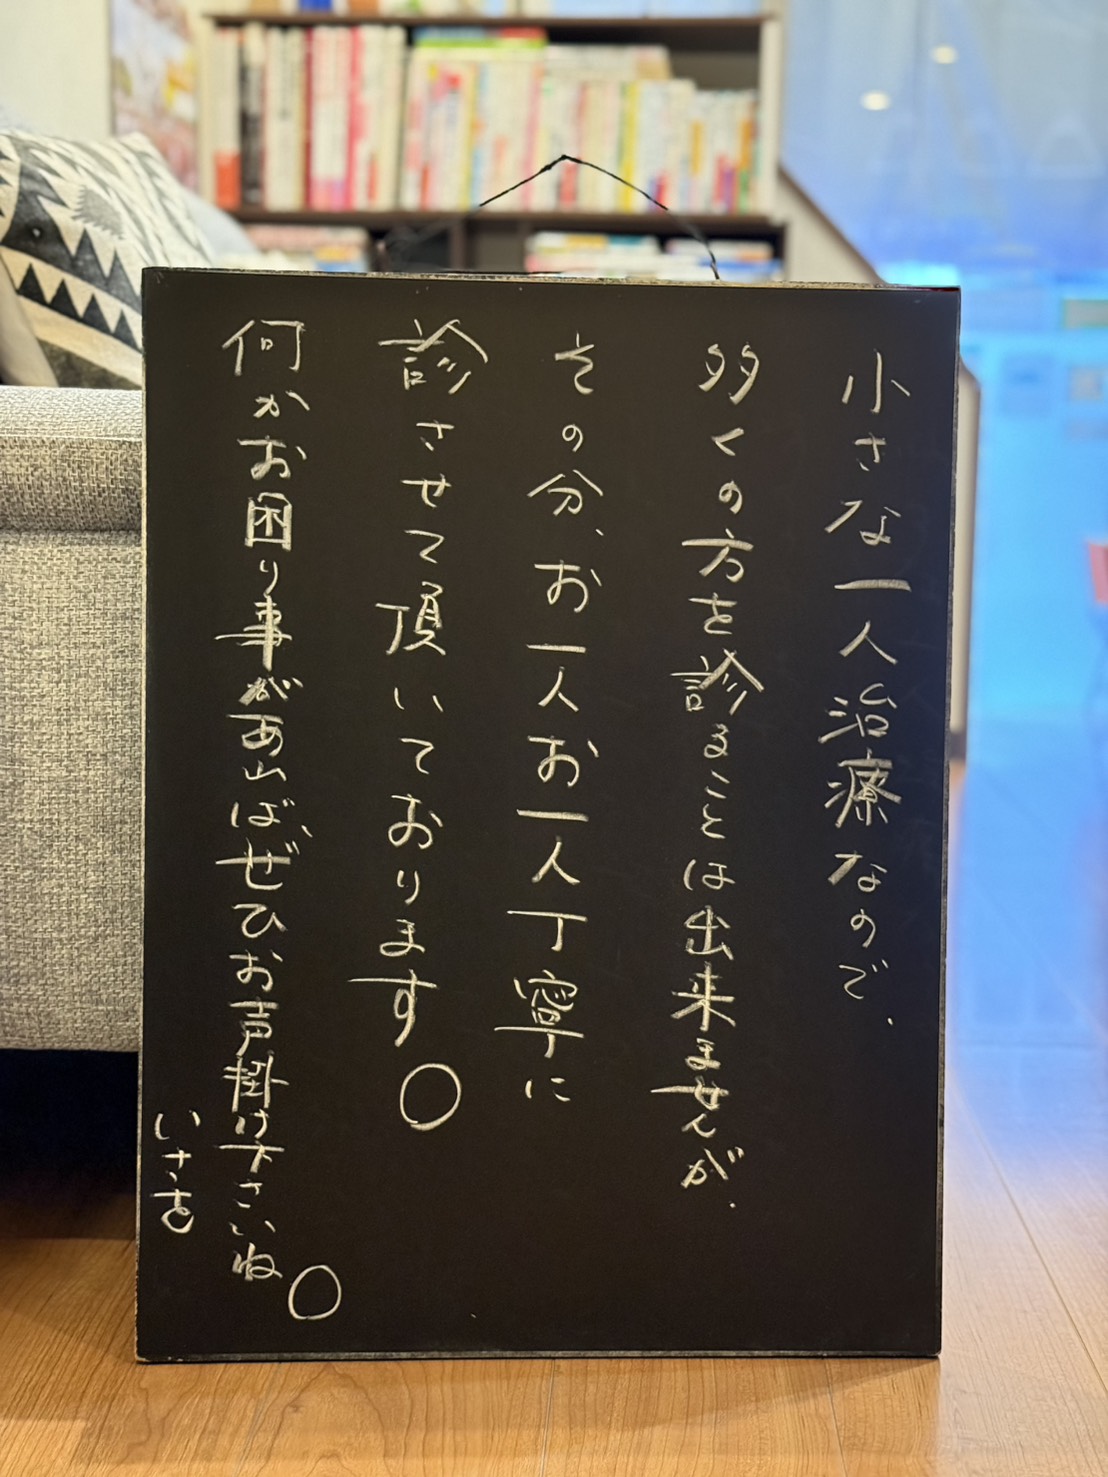 小さな一人治療なので、
多くの方を診ることは出来ませんが、
その分、お一人お一人丁寧に
診させて頂いております。
何かお困り事があればぜひお声掛け下さいね。
いさを